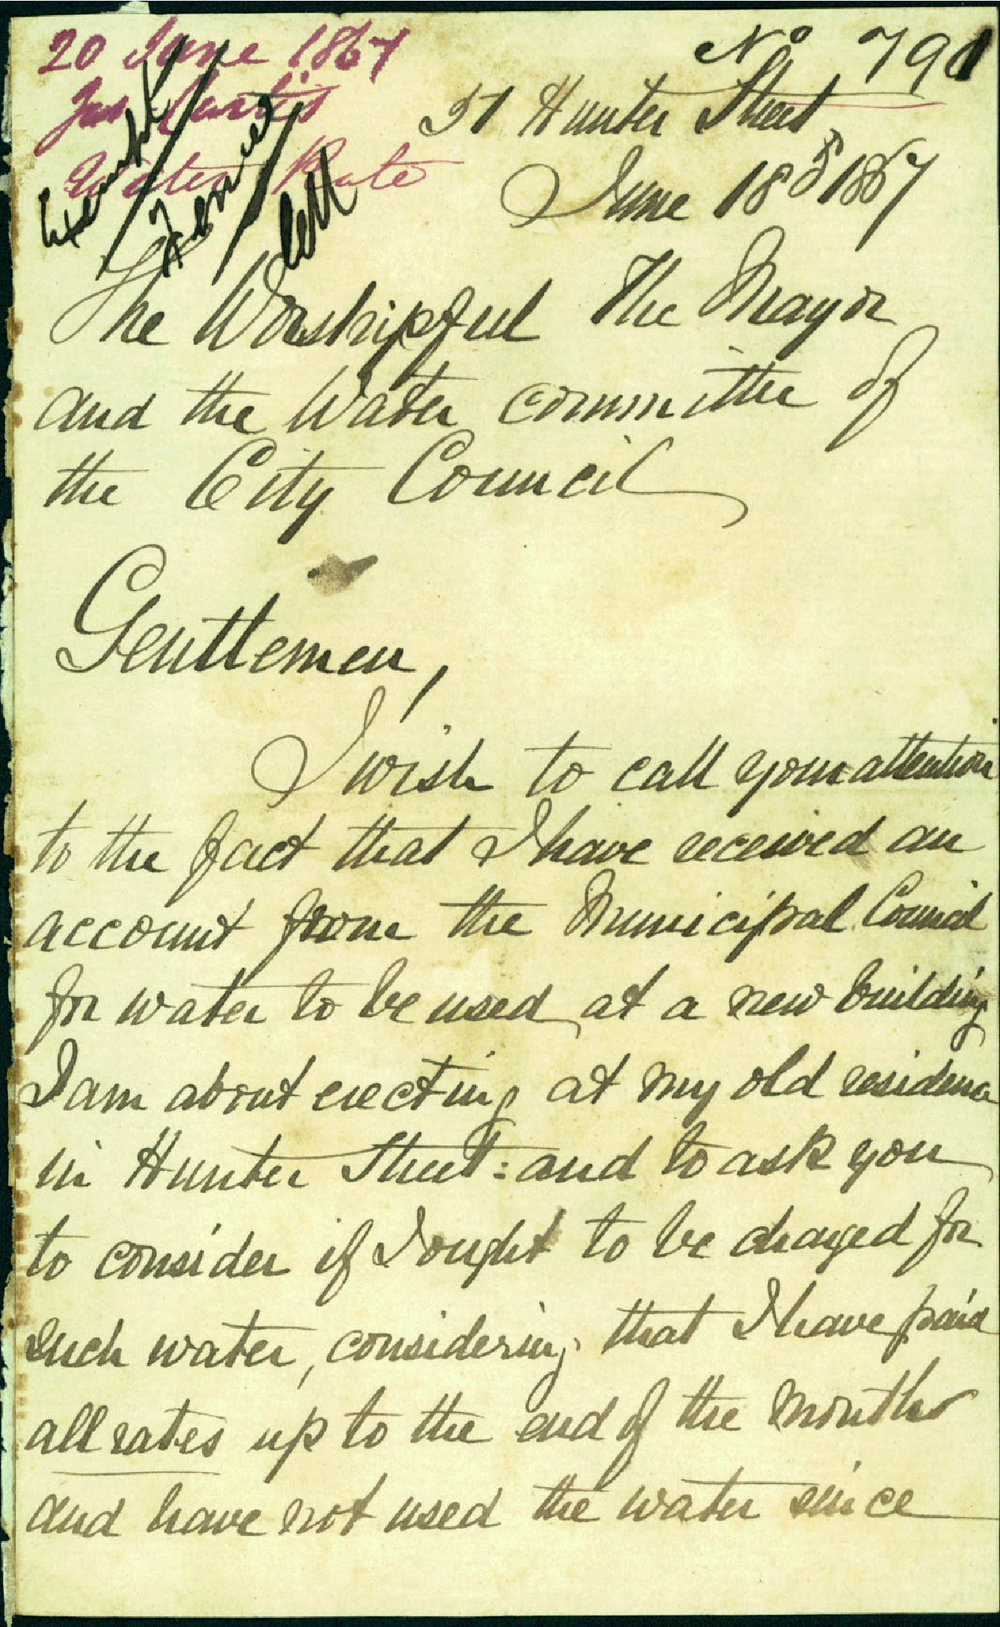 20 June 1867
Jas Curtis
Water Rate
No 790
51 Hunter Street
June 18th 1867
The Worshipful The Mayor
and the Water committee of
the City Council
Gentlemen,
I wish to call your attention
to the fact that I have received an
account from the Municipal Council
for water to be used at a new building
I am about erecting at my old residence
in Hunter Street: and to ask you
to consider if I ought to be charged for
such water, considering that I have paid
all rates up to the end of the month
and have not used the water since